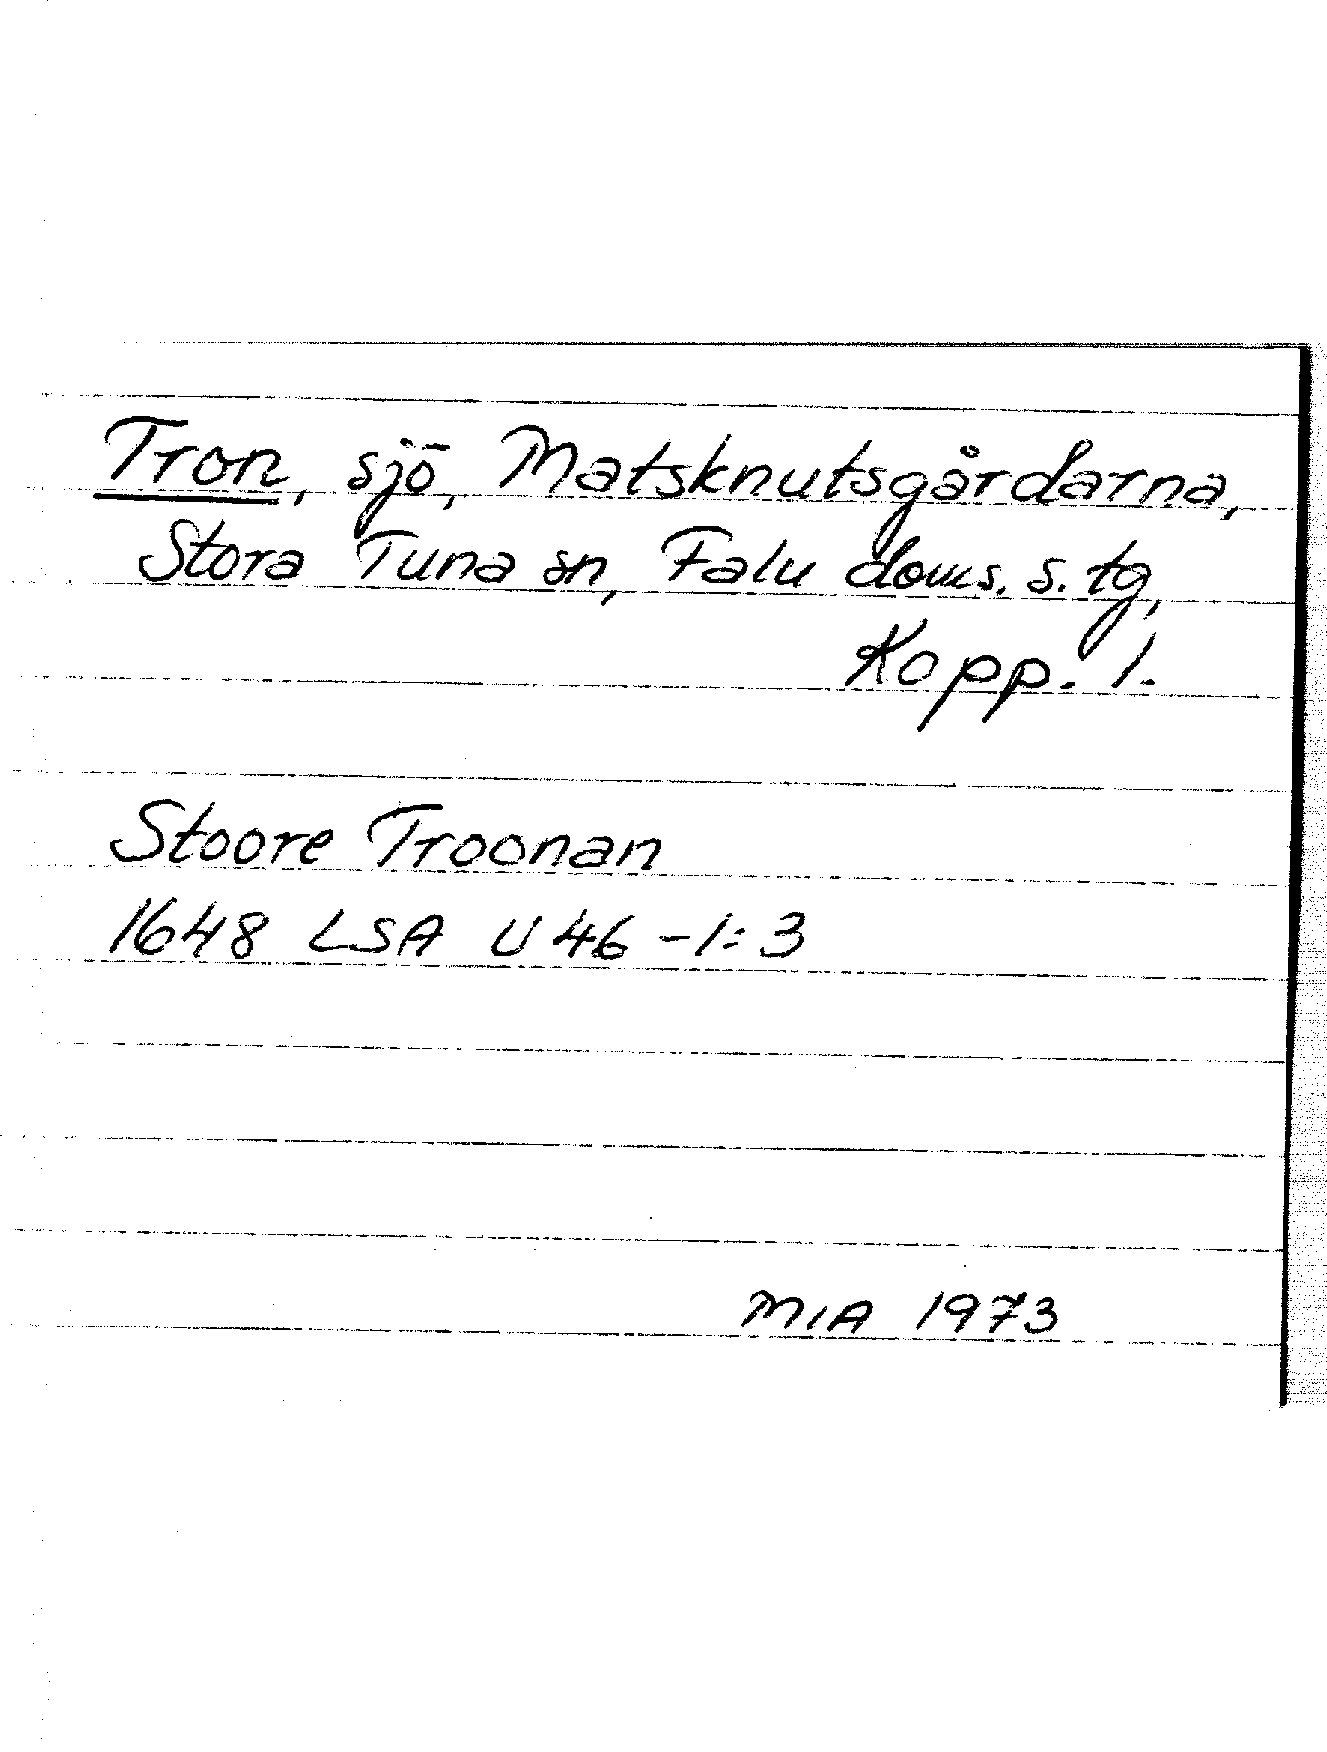 Tron, sjö, Matsknutsgårdarna,
Stora Tuna sn, Falu doms. s. tg,
Kopp. l.
Stoore Troonan
1648 LSA U 46 -1:3
MIA 1973